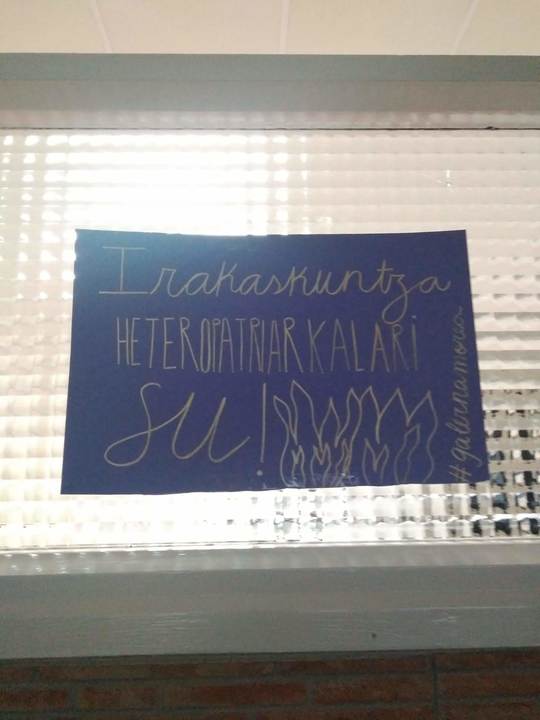 Irakaskuntza
HETEROPATRIARKALARI
SU!
#galernamorea